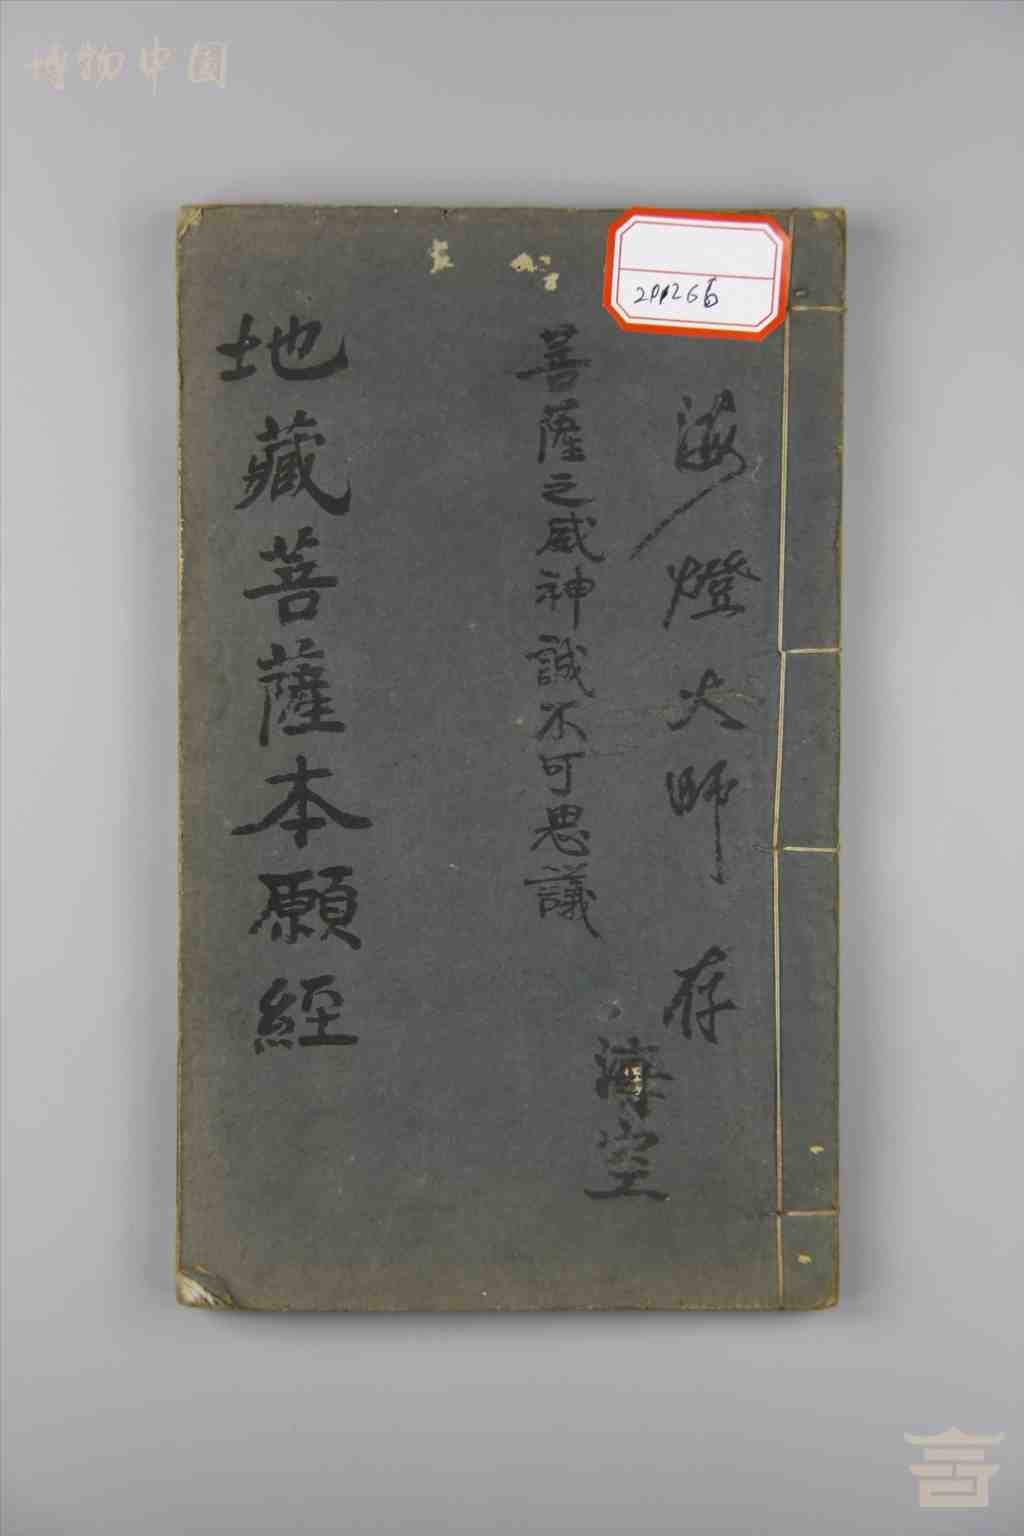 博物中国
201266
海燈大師 存
菩薩之威神誠不可思議
海空
地藏菩薩本願經